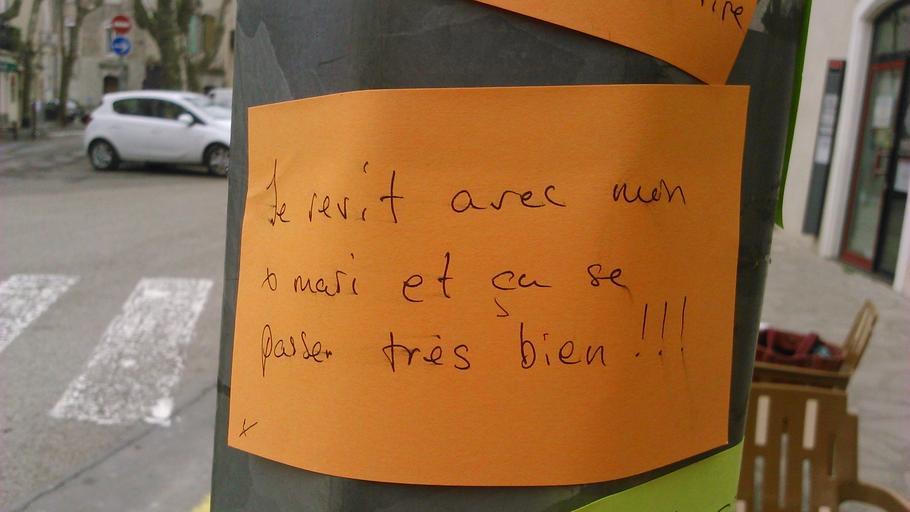 ire
Je revit avec mon
x mari et ça se
passer très bien !!!
x